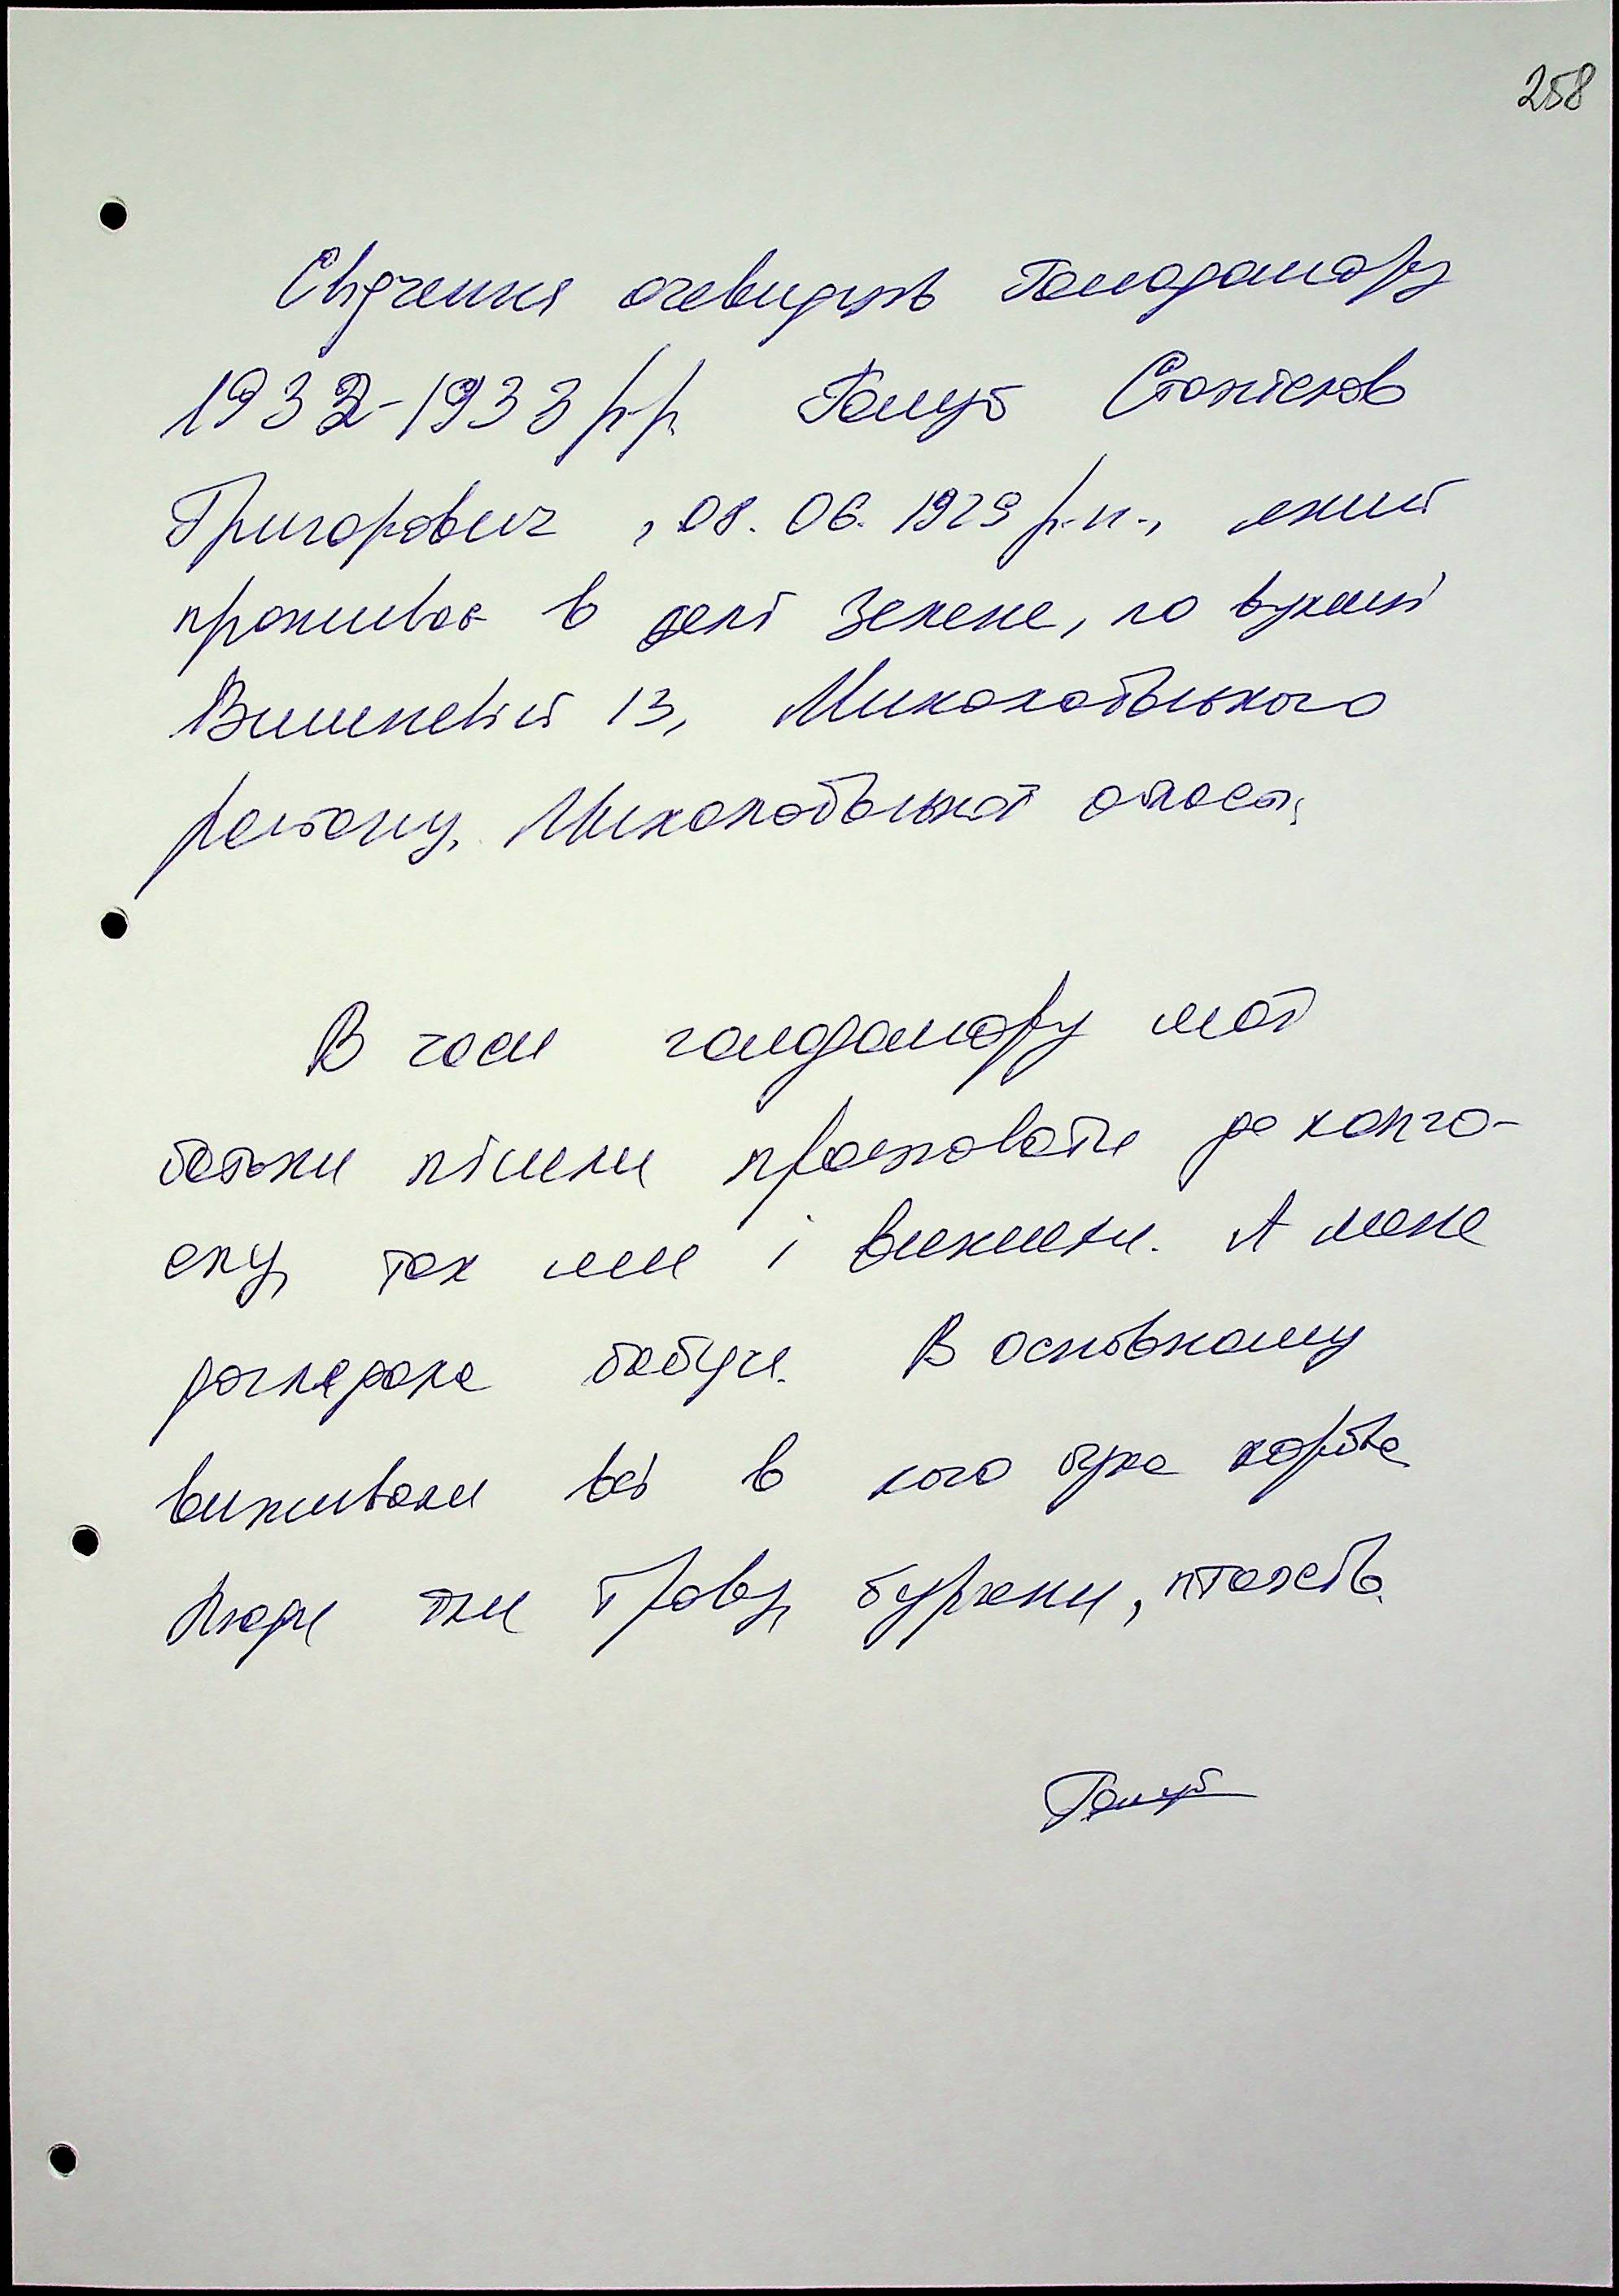 258
Свідчення очевидців Голодомору
1932-1933 р.р. Голуб Станіслав
Григорович, 08.06.1929 р.н., який
проживає в селі Зелене, по вулиці
Вишневій 13, Миколаївського
району, Миколаївської області
В часи голодомору мої
батьки пішли працювати до колго-
спу, так ми і вижили. А мене
доглядала бабуся. В основному
виживали всі в кого була корова
Люди їли траву, бурʼяни,
Голуб